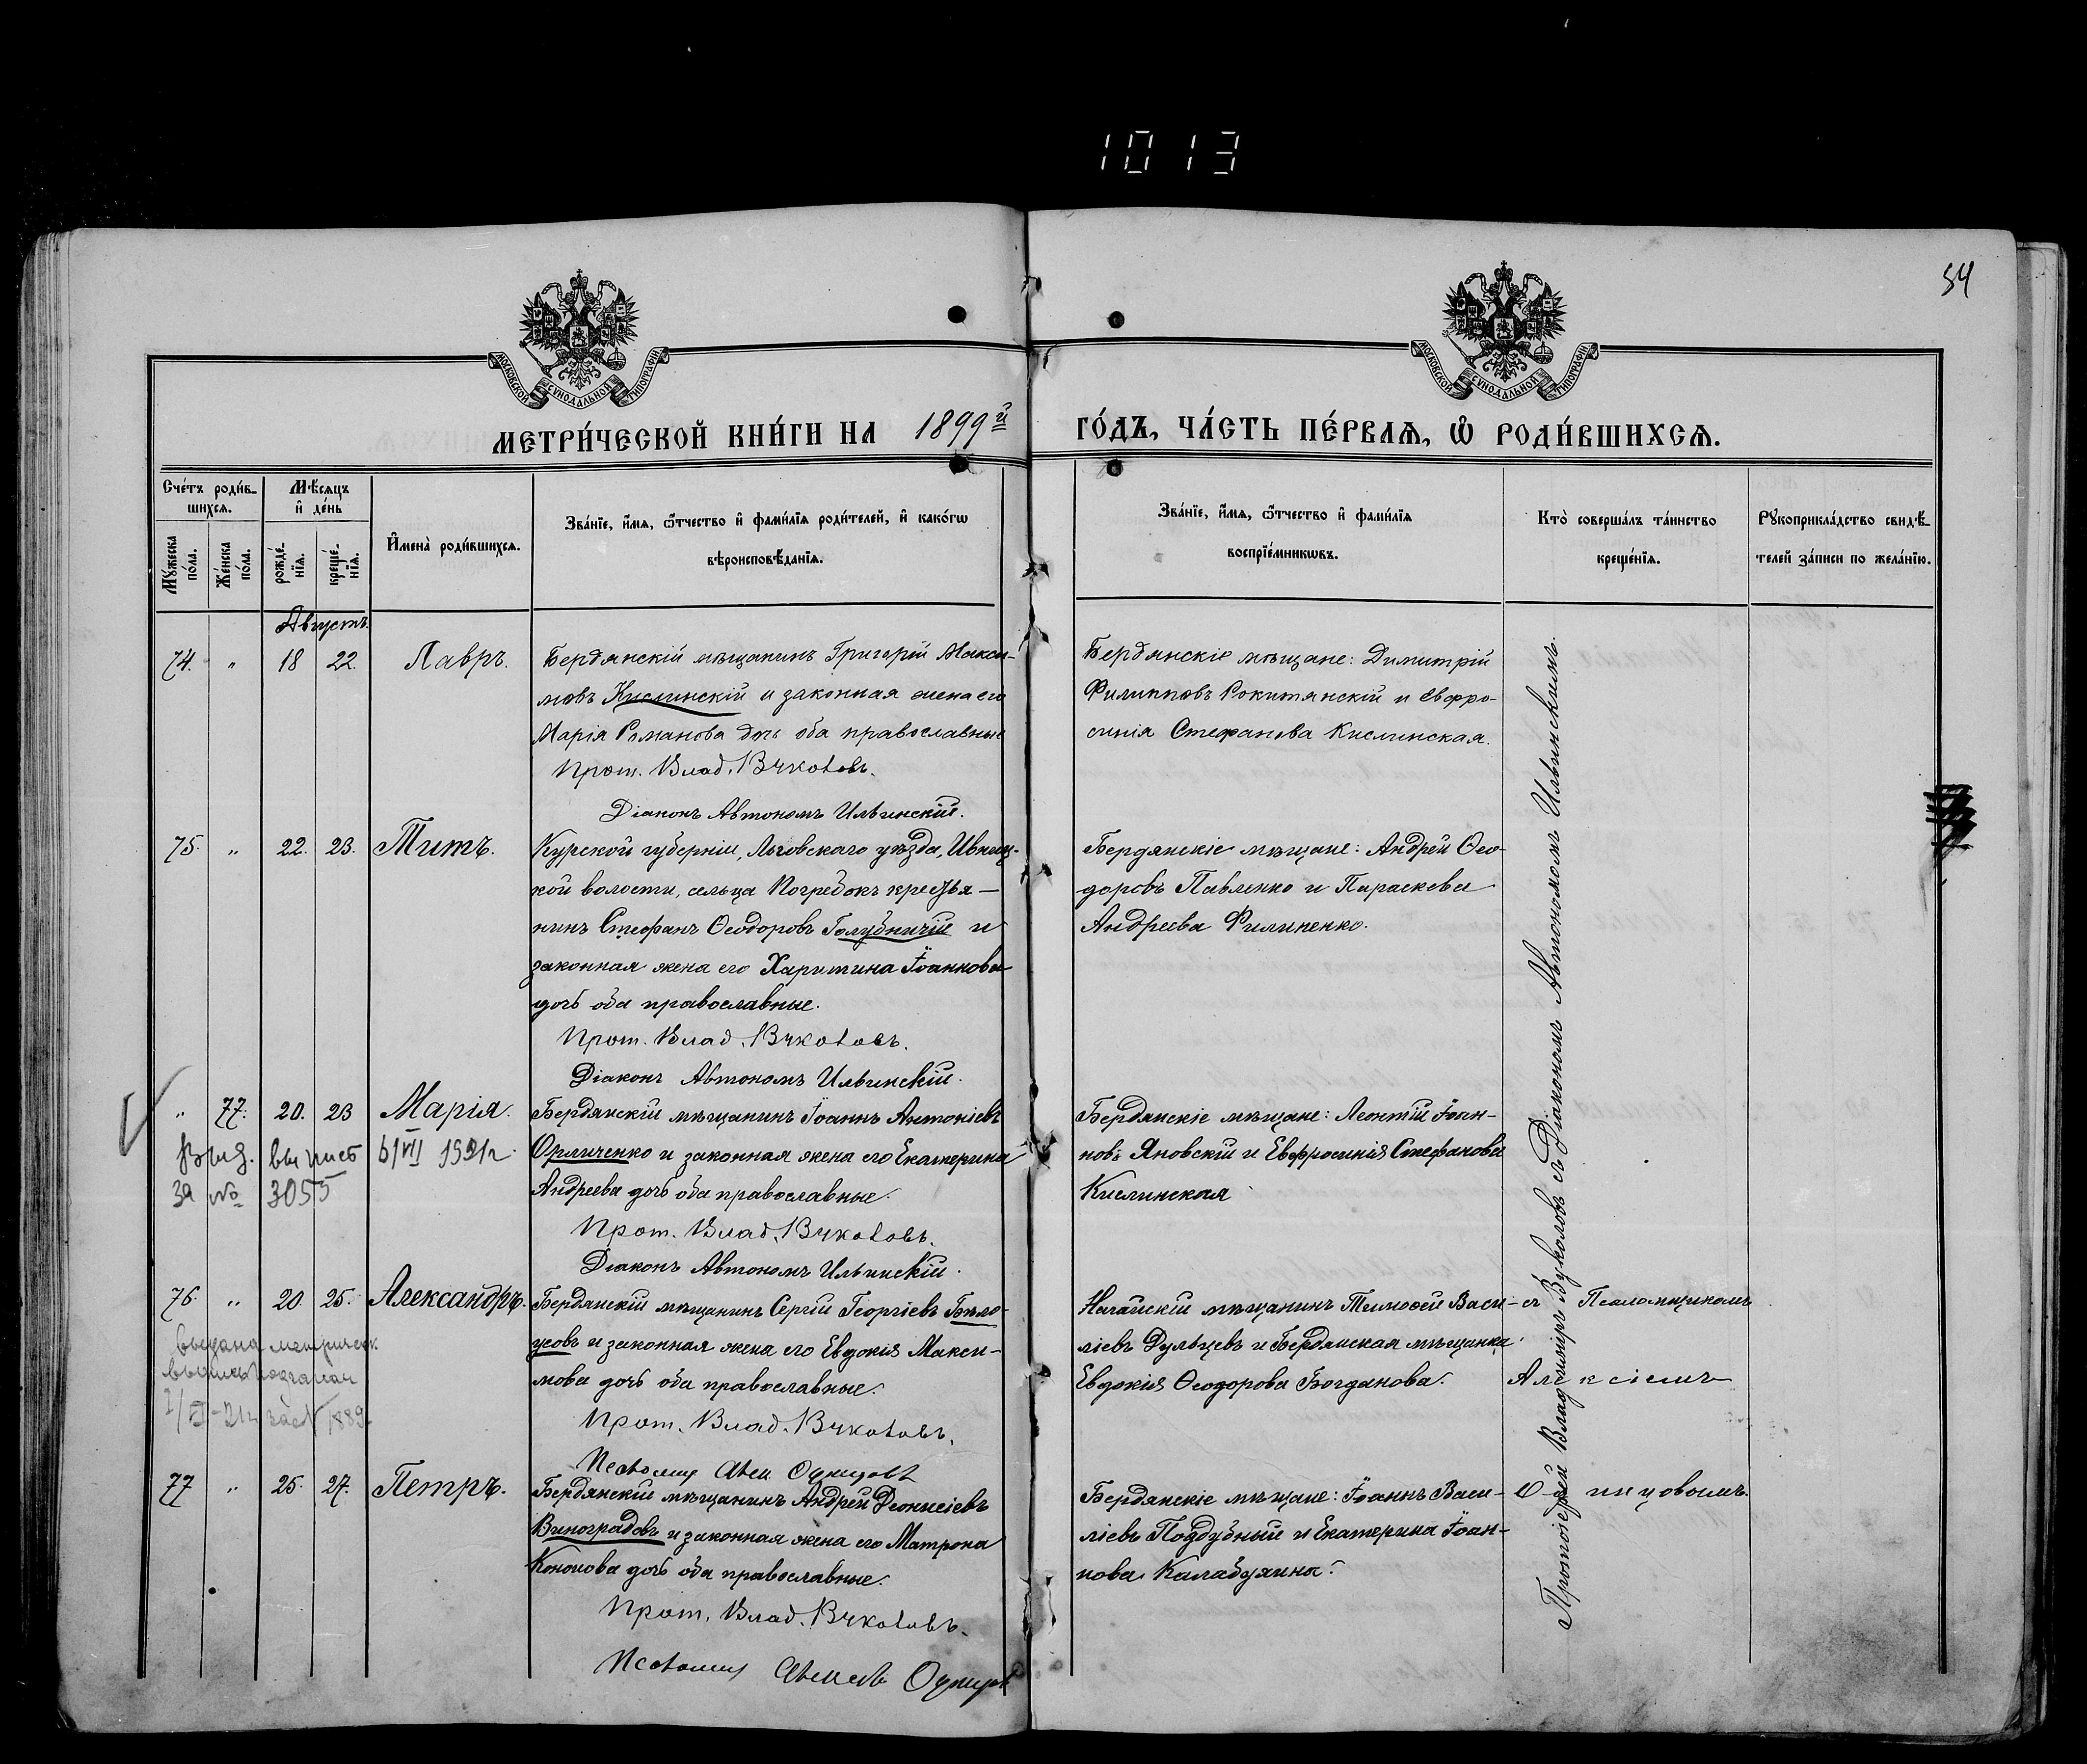 1013
54
МОСКОВСКОЙ СѴНОДАЛЬНОЙ ТИПОГРАФІИ
МОСКОВСКОЙ СѴНОДАЛЬНОЙ ТИПОГРАФІИ
МЕТРИ́ЧЕСКОЙ КНИ́ГИ НА 1899й ГО́ДЪ, ЧА́СТЬ ПЕ́РВАѦ, Ѽ РОДИ́ВШИХСѦ.
Сче́тъ роди́в-
шихсѧ.
Мꙋ́жеска по́ла.
Же́нска по́ла.
Мѣ́сѧцъ и҆ де́нь
рожде́-нїѧ.
креще́-нїѧ.
И҆мена̀ роди́вшихсѧ.
Зва́нїе, и҆́мѧ, ѻ҆́тчество и҆ фами́лїѧ роди́телей, и҆ како́гѡ
вѣроисповѣ́данїѧ.
Зва́нїе, и҆́мѧ, ѻ҆́тчество и҆ фами́лїѧ
воспрїе́мникѡвъ.
Кто̀ соверша́лъ та́инство
креще́нїѧ.
Рꙋкоприкла́дство свидѣ́-
телей за́писи по жела́нїю.
Августъ.
74. " 18 22. Лавръ.
Бердянскій мѣщанинъ Григорій Макси-
мовъ Кислинскій и законная жена его
Марія Романова дочь оба православные
Прот. Влад. Вуколовъ.
Діаконъ Автономъ Ильинскій.
Бердянскіе мѣщане: Димитрій
Филипповъ Рокитянскій и Евфро-
синія Стефанова Кислинская.
75. " 22. 23. Титъ.
Курской губерніи, Льговскаго уѣзда, Ивниц-
кой волости, сельца Погребокъ крестья-
нинъ Стефанъ Ѳеодоровъ Голубничій и
законная жена его Харитина Іоаннова
дочь оба православные.
Прот. Влад. Вуколовъ.
Діаконъ Автономъ Ильинскій.
Бердянскіе мѣщане: Андрей Ѳео-
доровъ Павленко и Параскева
Андреева Филипенко.
" 77. 20. 23 Марія.
Выд. выпись 6/VII 1921г.
За № 3055
Бердянскій мѣщанинъ Іоаннъ Антоніевъ
Орличенко и законная жена его Екатерина
Андреева дочь оба православные.
Прот. Влад. Вуколовъ.
Діаконъ Автономъ Ильинскій.
Бердянскіе мѣщане: Леонтій Іоан-
новъ Яновскій и Евфросинія Стефанова
Кислинская
76. " 20. 25. Александръ.
выдана метрическ.
Бердянскій мѣщанинъ Сергій Георгіевъ Бѣло-
усовъ и законная жена его Евдокія Макси-
мова дочь оба православные.
Прот. Влад. Вуколовъ.
Ногайскій мѣщанинъ Тимоѳей Васи-
ліевъ Дульцевъ и Бердянская мѣщанка
Евдокія Ѳеодорова Богданова.
77 " 25. 27. Петръ.
Бердянскій мѣщанинъ Андрей Діонисіевъ
Виноградовъ и законная жена его Матрона
Кононова дочь оба православные.
Прот. Влад. Вуколовъ.
Бердянскіе мѣщане: Іоаннъ Васи-
ліевъ Поддубный и Екатерина Іоан-
нова
Протоіерей Владиміръ Вуколовъ съ Діакономъ Автономомъ Ильинскимъ.
съ Псаломщикомъ
Алексіемъ